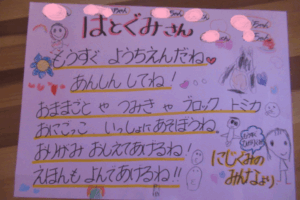 ちゃん ちゃん ちゃん
はとぐみさん
もうすぐ ようちえんだね
あんしん してね！
おままごと や つみき や ブロック トミカ
おにごっこ いっしょにあそぼうね
おりがみ おしえてあげるね！
えほんも よんであげるね！！
にじぐみの
みんなより